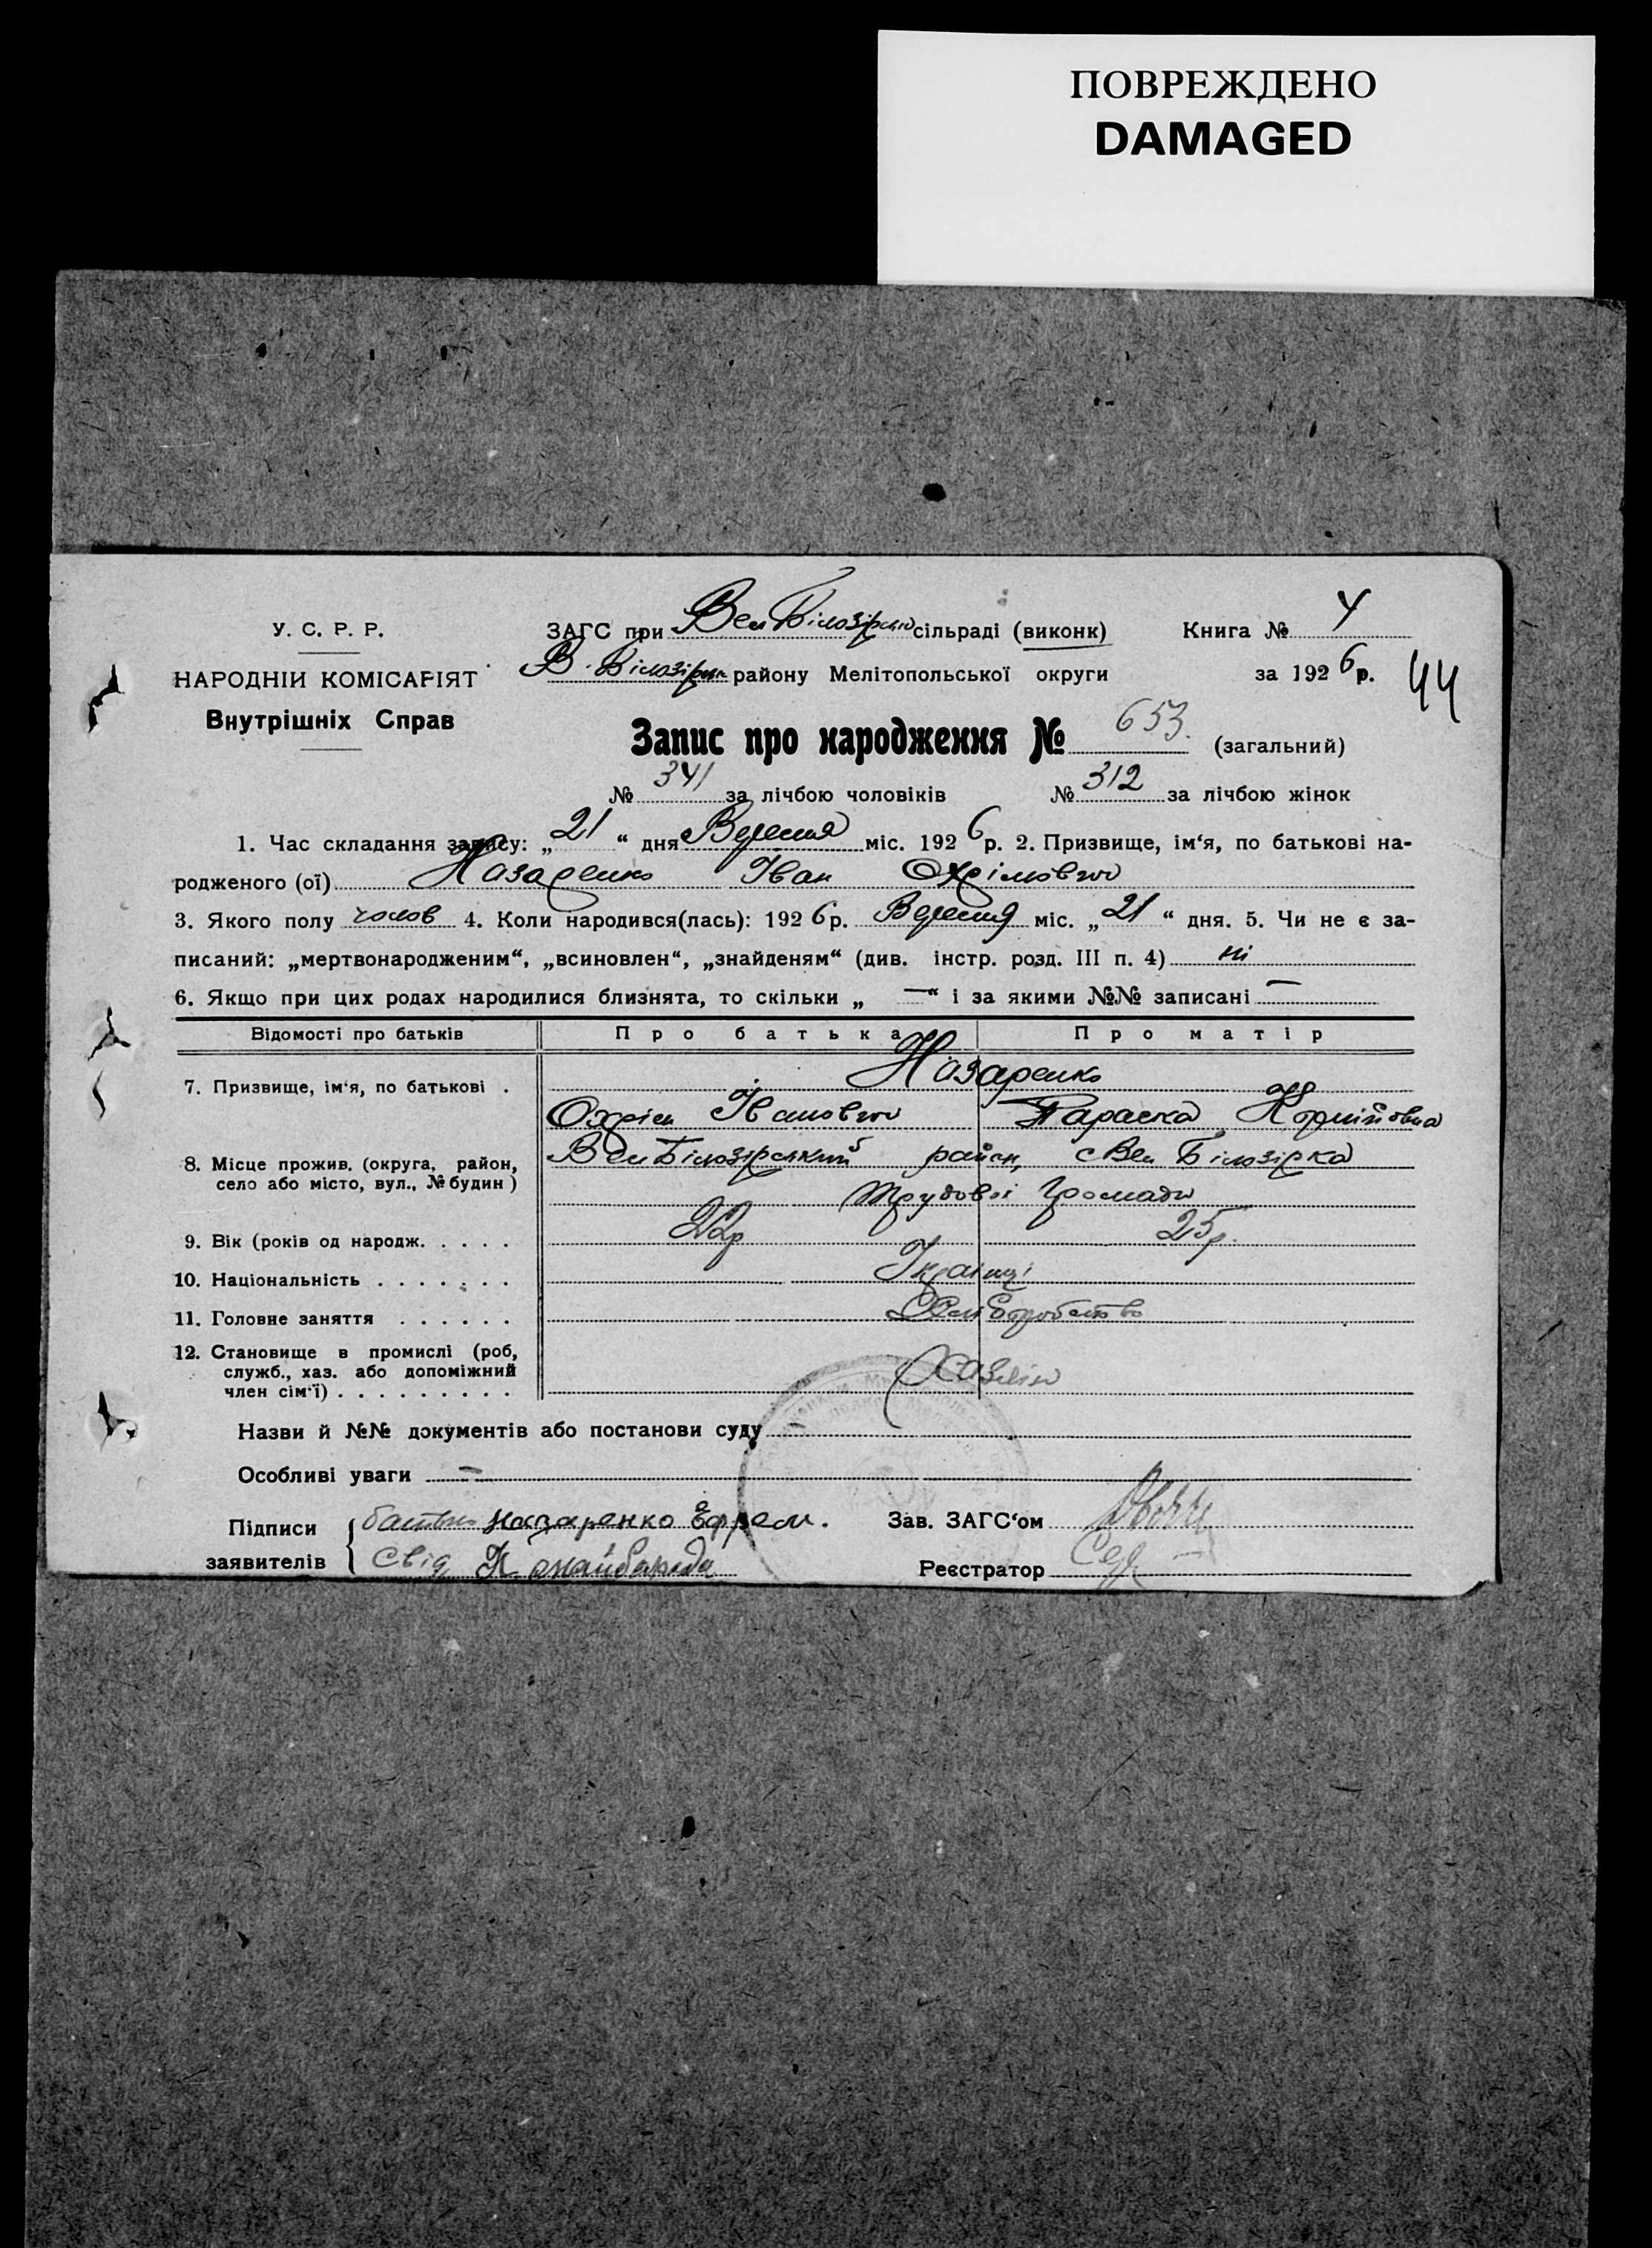 ПОВРЕЖДЕНО
DAMAGED
У. С. Р. Р.
НАРОДНІЙ КОМІСАРІЯТ
Внутрішніх Справ
ЗАГС при Вел Білозірській сільраді (виконк)
Книга № 4
В. Білозірськ району Мелітопольської округи
за 1926 р.
44
Запис про народження № 653. (загальний)
№ 341 за лічбою чоловіків № 312 за лічбою жінок
1. Час складання запису: „ 21 “ дня Вересня міс. 1926 р. 2. Призвище, ім‘я, по батькові на-
родженого (ої) Назаренко Іван Охрімович
3. Якого полу чолов 4. Коли народився(лась): 1926 р. Вересня міс. „ 21 “ дня. 5. Чи не є за-
писаний: „мертвонародженим“, „всиновлен“, „знайденям“ (див. інстр. розд. III п. 4) ні
6. Якщо при цих родах народилися близнята, то скільки „ — “ і за якими №№ записані —
Відомості про батьків Про батька Про матір
7. Призвище, ім‘я, по батькові . Назаренко
Охрім Іванович Параска Корнійовна
8. Місце прожив. (округа, район,
село або місто, вул., № будин)
Вел Білозірський район, с Вел Білозірка
Трудової Громади
9. Вік (років од народж. . . . . 22р 25р.
10. Національність . . . . . . . Українці
11. Головне заняття . . . . . . Хліборобство
12. Становище в промислі (роб,
служб., хаз. або допоміжний
член сім‘ї) . . . . . . . . .
Назви й №№ документів або постанови суду
Особливі уваги —
Підписи
заявителів
батько Назаренко Ефрем.
Свід
Зав. ЗАГС‘ом
Реєстратор